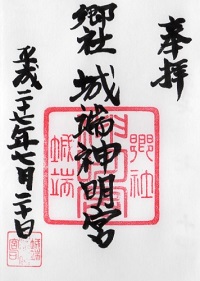 奉拝
郷社 城端神明宮
平成二十七年七月二十日
郷社
神明宮
城端
城端
宮印